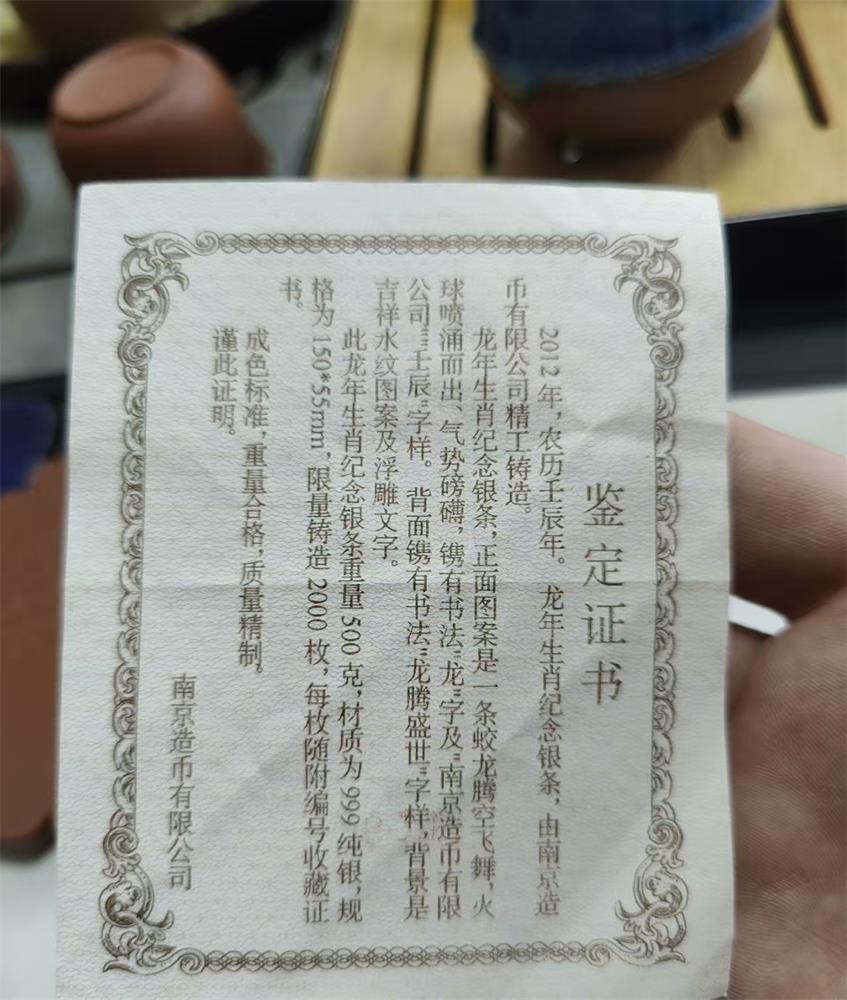 鉴定证书
2012年，农历壬辰年。龙年生肖纪念银条，由南京造
币有限公司精工铸造。
龙年生肖纪念银条，正面图案是一条蛟龙腾空飞舞，火
球喷涌而出、气势磅礴，镌有书法"龙"字及"南京造币有限
公司""壬辰"字样。背面镌有书法"龙腾盛世"字样，背景是
吉祥水纹图案及浮雕文字。
此龙年生肖纪念银条重量500克，材质为999纯银，规
格为150*55mm，限量铸造2000枚，每枚随附编号收藏证
书。
成色标准，重量合格，质量精制。
谨此证明。
南京造币有限公司